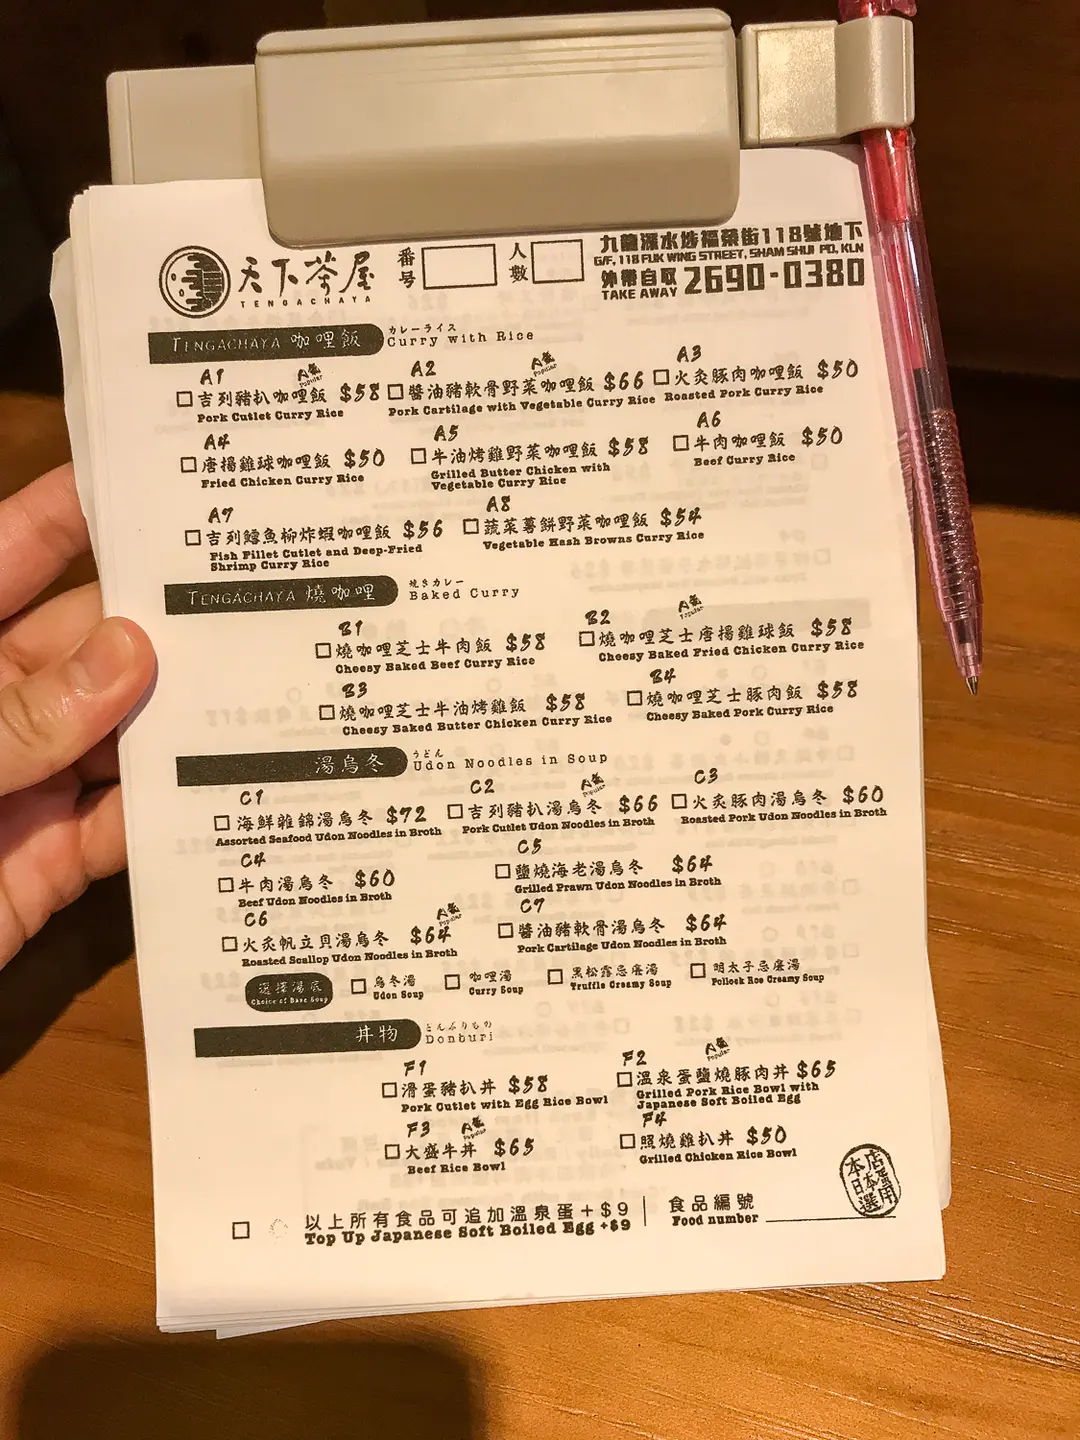 天下茶屋
TENGACHAYA
番号
人數
九龍深水埗福榮街118號地下
G/F, 118 FUK WING STREET, SHAM SHUI PO, KLN
外帶自取 2690-0380
TAKE AWAY
TENGACHAYA 咖哩飯 カレーライス
Curry with Rice
A1 人氣 Popular
吉列豬扒咖哩飯 $58
Pork Cutlet Curry Rice
A2 人氣
醬油豬軟骨野菜咖哩飯 $66
Pork Cartilage with Vegetable Curry Rice
A3
火炙豚肉咖哩飯 $50
Roasted Pork Curry Rice
A4
唐揚雞球咖哩飯 $50
Fried Chicken Curry Rice
A5
牛油烤雞野菜咖哩飯 $58
Grilled Butter Chicken with
Vegetable Curry Rice
A6
牛肉咖哩飯 $50
Beef Curry Rice
A7
吉列鱈魚柳炸蝦咖哩飯 $56
Fish Fillet Cutlet and Deep-Fried
Shrimp Curry Rice
A8
蔬菜薯餅野菜咖哩飯 $54
Vegetable Hash Browns Curry Rice
TENGACHAYA 燒咖哩 焼きカレー
Baked Curry
B1
燒咖哩芝士牛肉飯 $58
Cheesy Baked Beef Curry Rice
B2 人氣 Popular
燒咖哩芝士唐揚雞球飯 $58
Cheesy Baked Fried Chicken Curry Rice
B3
燒咖哩芝士牛油烤雞飯 $58
Cheesy Baked Butter Chicken Curry Rice
B4
燒咖哩芝士豚肉飯 $58
Cheesy Baked Pork Curry Rice
湯烏冬 うどん
Udon Noodles in Soup
C1
海鮮雜錦湯烏冬 $72
Assorted Seafood Udon Noodles in Broth
C2 人氣 Popular
吉列豬扒湯烏冬 $66
Pork Cutlet Udon Noodles in Broth
C3
火炙豚肉湯烏冬 $60
Roasted Pork Udon Noodles in Broth
C4
牛肉湯烏冬 $60
Beef Udon Noodles in Broth
C5
鹽燒海老湯烏冬 $64
Grilled Prawn Udon Noodles in Broth
C6 人氣 Popular
火炙帆立貝湯烏冬 $64
Roasted Scallop Udon Noodles in Broth
C7
醬油豬軟骨湯烏冬 $64
Pork Cartilage Udon Noodles in Broth
選擇湯底
Choice of Base Soup
烏冬湯
Udon Soup
咖哩湯
Curry Soup
黑松露忌廉湯
Truffle Creamy Soup
明太子忌廉湯
Pollock Roe Creamy Soup
丼物 どんぶりもの
Donburi
F1
滑蛋豬扒丼 $58
Pork Cutlet with Egg Rice Bowl
F2 人氣 Popular
溫泉蛋鹽燒豚肉丼 $65
Grilled Pork Rice Bowl with
Japanese Soft Boiled Egg
F3 人氣 Popular
大盛牛丼 $65
Beef Rice Bowl
F4
照燒雞扒丼 $50
Grilled Chicken Rice Bowl
本店日本蛋選用
以上所有食品可追加溫泉蛋+$9
Top Up Japanese Soft Boiled Egg +$9
食品編號
Food number